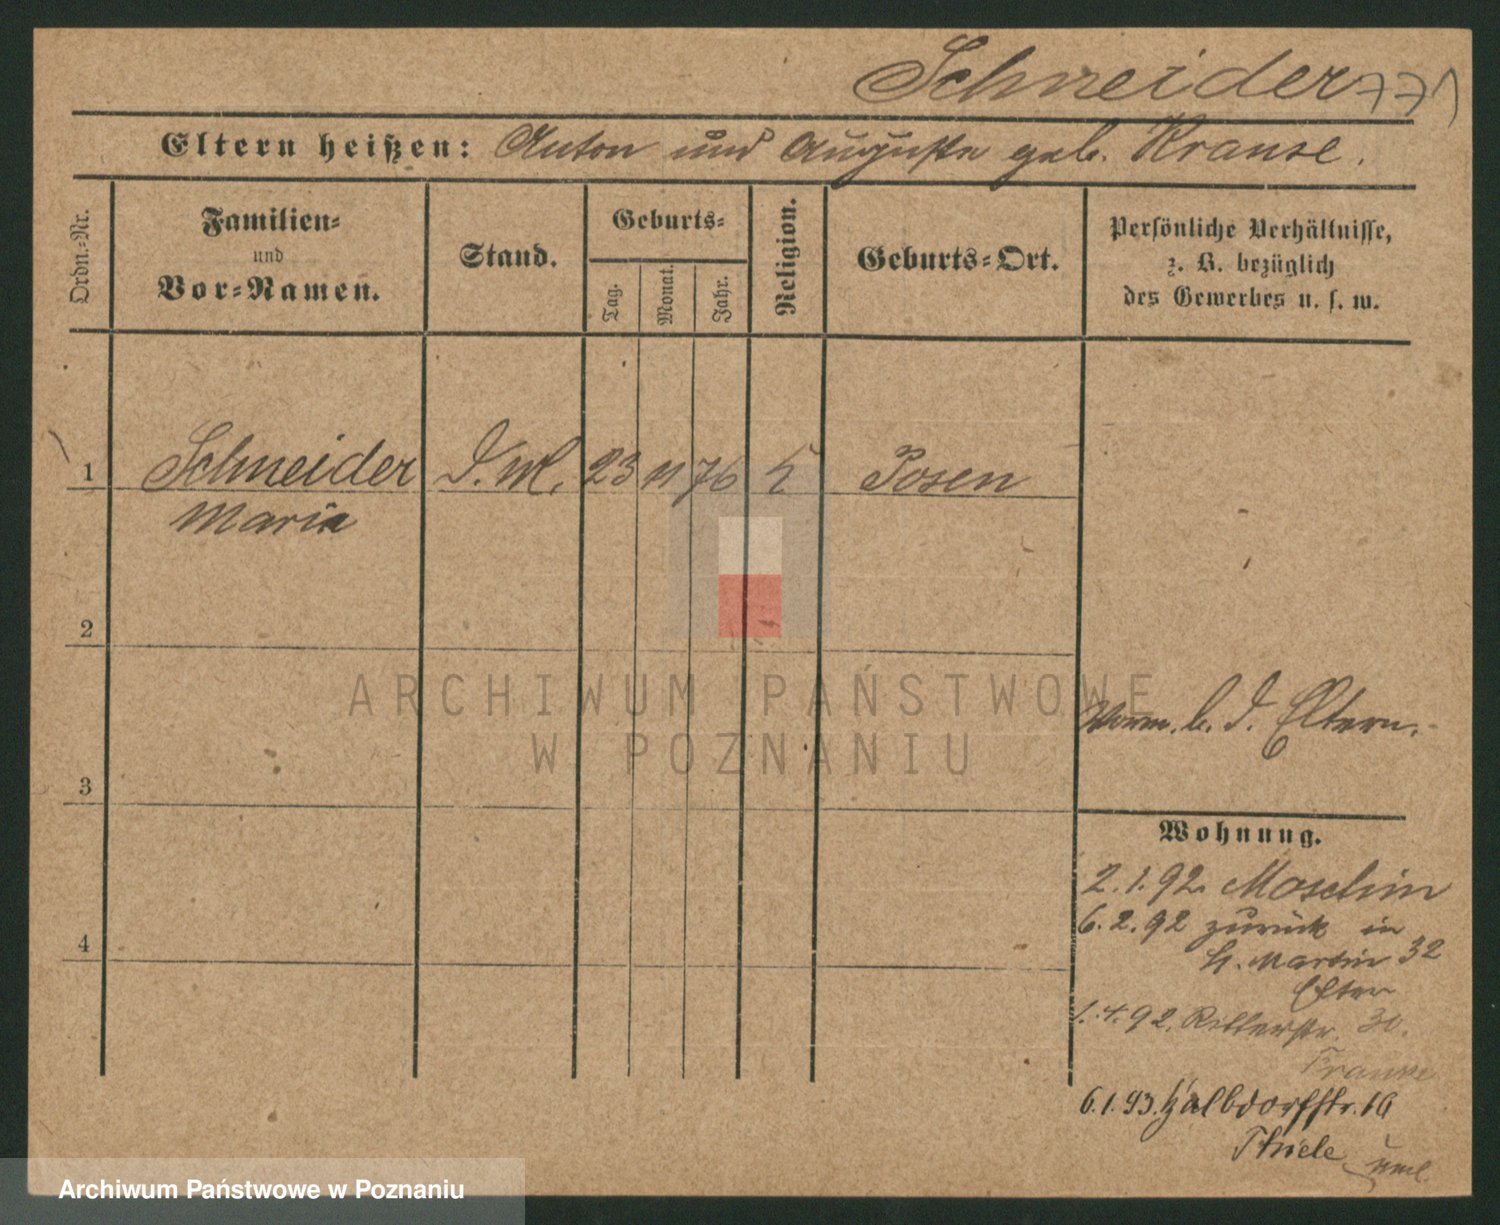 Schneider 771
Eltern heißen: Anton und Auguste geb. Krause.
Ordn.-Nr.
Familien-
und
Vor-Namen.
Stand.
Geburts-
Tag.
Monat.
Jahr.
Religion.
Geburts-Ort.
Persönliche Verhältnisse,
z. B. bezüglich
des Gewerbes u. s. w.
1 Schneider D. M. 23 11 76 k Posen
Maria
2
3
4
b. d. Eltern.
Wohnung.
2.1.92. Moschin
6.2.92 zurück in
St. Martin 32
Eltern
1.4.92. Ritterstr. 30.
Krause
6.1.93. Halbdorfstr. 16
Thiele
ARCHIWUM PAŃSTWOWE
W POZNANIU
Archiwum Państwowe w Poznaniu